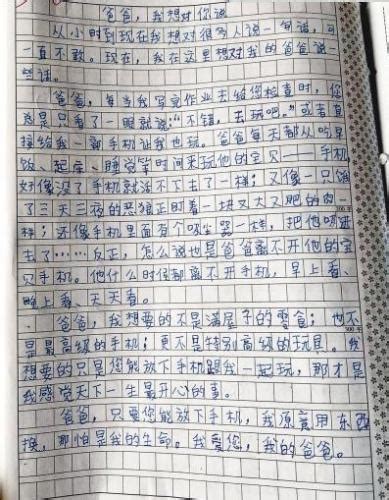 爸爸，我想对你说
从小时到现在我想对很多人说一句话，可一
直不敢。现在，我在这里想对我的爸爸说一
些话。
爸爸，每当我写完作业去给您检查时，你
总是只看了一眼就说：“不错，去玩吧。”或者直
接给我一部手机让我也玩。爸爸每天都从吃早
饭、起床、睡觉等时间来玩他的宝贝——手机，
好像没了手机就活不下去了一样；又像一只饿
了三天三夜的恶狼正盯着一块又大又肥的肉一
样；还像手机里面有个吸尘器一样，把他吸进
去了……反正，怎么说也是爸爸离不开他的宝
贝手机。他什么时候都离不开手机，早上看、
晚上看、天天看。
爸爸，我想要的不是满屋子的零食；也不
是最高级的手机；更不是特别高级的玩具。我
想要的只是您能放下手机跟我一起玩，那才是
我感觉天下一生最开心的事。
爸爸，只要您能放下手机，我愿意用东西
换，那怕是我的生命。我爱您，我的爸爸。